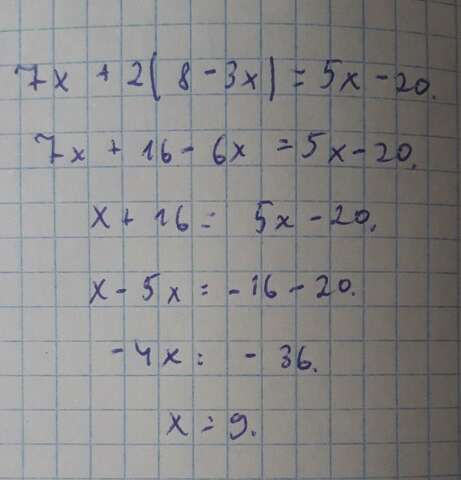 7x + 2(8 - 3x) = 5x - 20.
7x + 16 - 6x = 5x - 20.
x + 16 = 5x - 20.
x - 5x = -16 - 20.
-4x = -36.
x = 9.